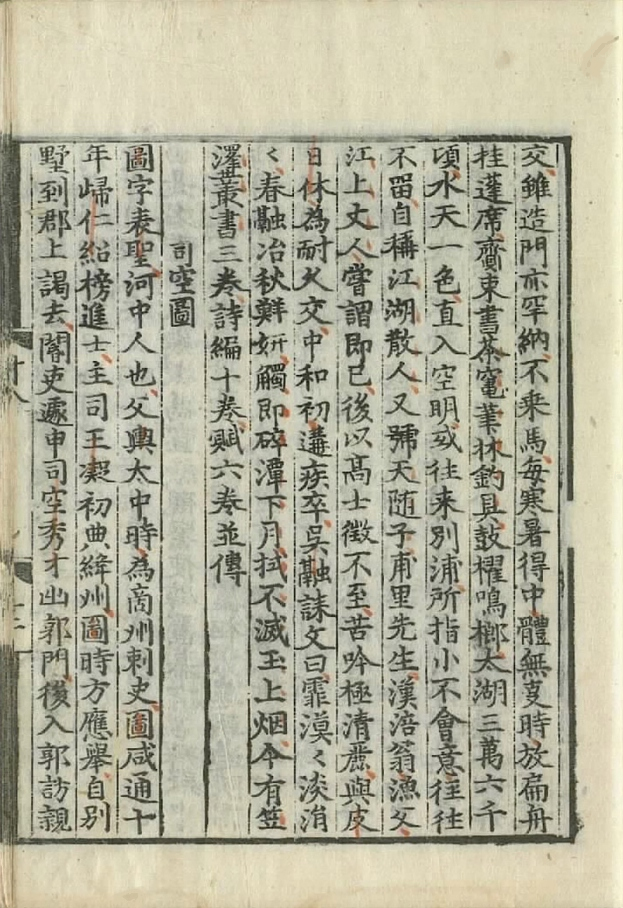 交雖造門亦罕納不来馬每寒暑得中體無夏時放扁舟
挂蓬席賫束書茶竃筆牀釣具鼓櫂鳴榔太湖三萬六千
頃水天一色直入空明或往来別浦所指小不會意徃徃
不留自稱江湖散人又號天随子甫里先生漢涪翁漁父
江上丈人嘗謂即已後以髙士徵不至苦吟極清麗與皮
日休為耐久交中和初遘疾卒吳融誄文曰霏漠〻淡涓
〻春融冶秋鮮妍觸即碎潭下月拭不滅玉上烟今有笠
澤叢書三卷詩編十卷賦六卷並傳
司空圖
圖字表聖河中人也父輿太中時為商州刺史圖咸通十
年歸仁紹榜進士主司王凝初典絳州圖時方應舉自別
墅到郡上謁去閽吏遽申司空秀才出郭門後入郭訪親
十八
十三